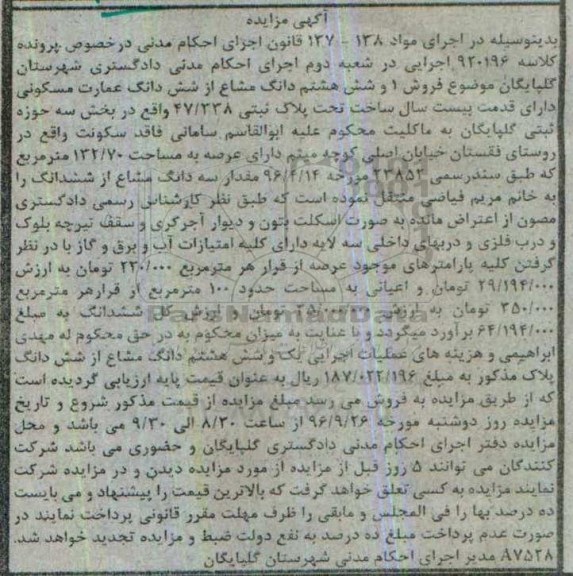 آگهی مزایده
بدینوسیله در اجرای مواد ۱۳۸ - ۱۳۷ قانون اجرای احکام مدنی درخصوص پرونده
کلاسه ۹۲۰۱۹۶ اجرایی در شعبه دوم اجرای احکام مدنی دادگستری شهرستان
گلپایگان موضوع فروش ۱ و شش هشتم دانگ مشاع از شش دانگ عمارت مسکونی
دارای قدمت بیست سال ساخت تحت پلاک ثبتی ۴۷/۳۳۸ واقع در بخش سه حوزه
ثبتی گلپایگان به مالکیت محکوم علیه ابوالقاسم سامانی فاقد سکونت واقع در
روستای فقستان خیابان اصلی کوچه میثم دارای عرصه به مساحت ۱۳۲/۷۰ مترمربع
که طبق سندرسمی ۲۳۸۵۲ مورخه ۹۶/۴/۱۴ مقدار سه دانگ مشاع از ششدانگ را
به خانم مریم فیاضی منتقل نموده است که طبق نظر کارشناس رسمی دادگستری
مصون از اعتراض مانده به صورت اسکلت بتون و دیوار آجرگری و سقف تیرچه بلوک
و درب فلزی و دربهای داخلی سه لایه دارای کلیه امتیازات آب و برق و گاز با در نظر
گرفتن کلیه پارامترهای موجود عرصه از قرار هر مترمربع ۲۲۰/۰۰۰ تومان به ارزش
۲۹/۱۹۴/۰۰۰ تومان و اعیانی به مساحت حدود ۱۰۰ مترمربع از قرارهر مترمربع
۳۵۰/۰۰۰ تومان به ارزش تومان با ارزش کل ششدانگ به مبلغ
۶۴/۱۹۴/۰۰۰ برآورد میگردد و با عنایت به میزان محکوم به در حق محکوم له مهدی
ابراهیمی و هزینه های عملیات اجرایی یک و شش هشتم دانگ مشاع از شش دانگ
پلاک مذکور به مبلغ ۱۸۷/۰۲۲/۱۹۶ ریال به عنوان قیمت پایه ارزیابی گردیده است
که از طریق مزایده به فروش می رسد مبلغ مزایده از قیمت مذکور شروع و تاریخ
مزایده روز دوشنبه مورخه ۹۶/۹/۲۶ از ساعت ۸/۳۰ الی ۹/۳۰ می باشد و محل
مزایده دفتر اجرای احکام مدنی دادگستری گلپایگان و حضوری می باشد شرکت
کنندگان می توانند ۵ روز قبل از مزایده از مورد مزایده دیدن و در مزایده شرکت
نمایند مزایده به کسی تعلق خواهد گرفت که بالاترین قیمت را پیشنهاد و می بایست
ده درصد بها را فی المجلس و مابقی را ظرف مهلت مقرر قانونی پرداخت نمایند در
صورت عدم پرداخت مبلغ ده درصد به نفع دولت ضبط و مزایده تجدید خواهد شد.
A۷۵۲۸ مدیر اجرای احکام مدنی شهرستان گلپایگان